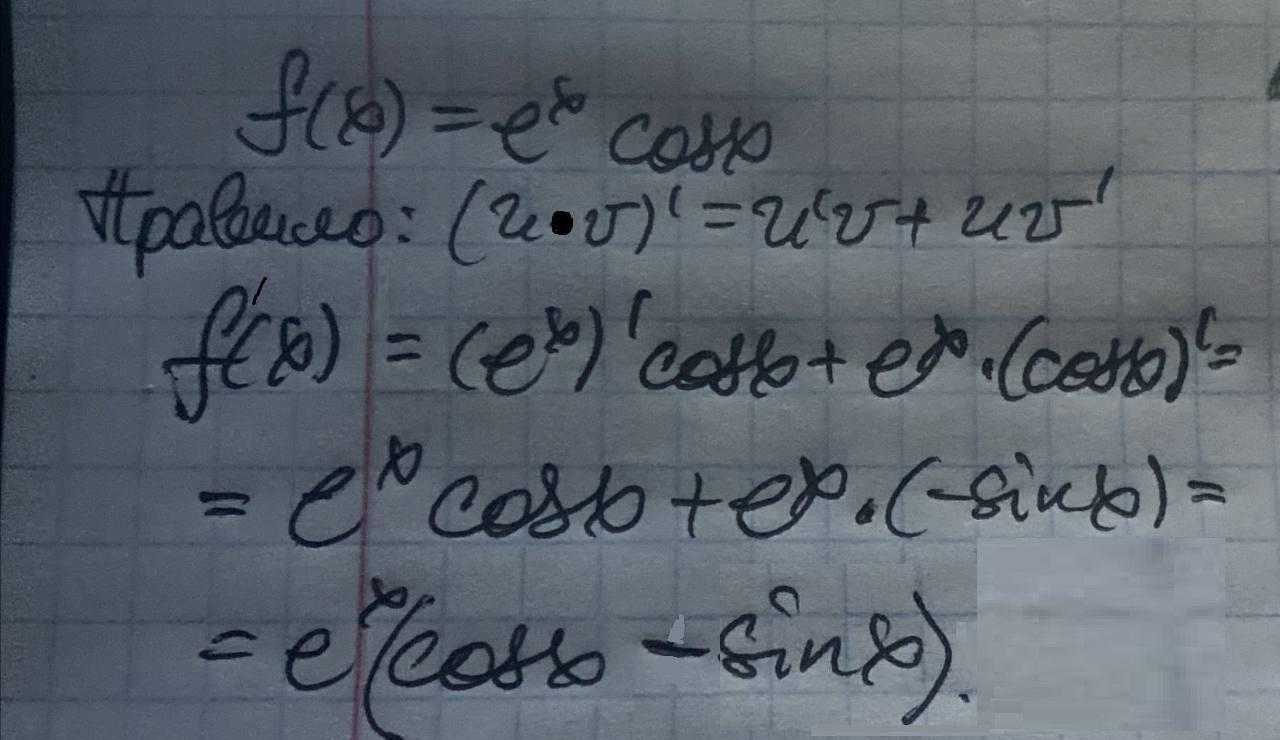 f(x) = eˣ cosx
Правило: (u•v)' = u'v + uv'
f'(x) = (eˣ)' cosx + eˣ·(cosx)' =
= eˣ cosx + eˣ·(-sinx) =
= eˣ(cosx - sinx).